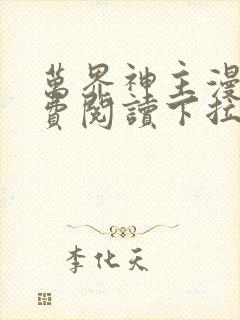 萬界神主漫
費閱讀下拉
李化天